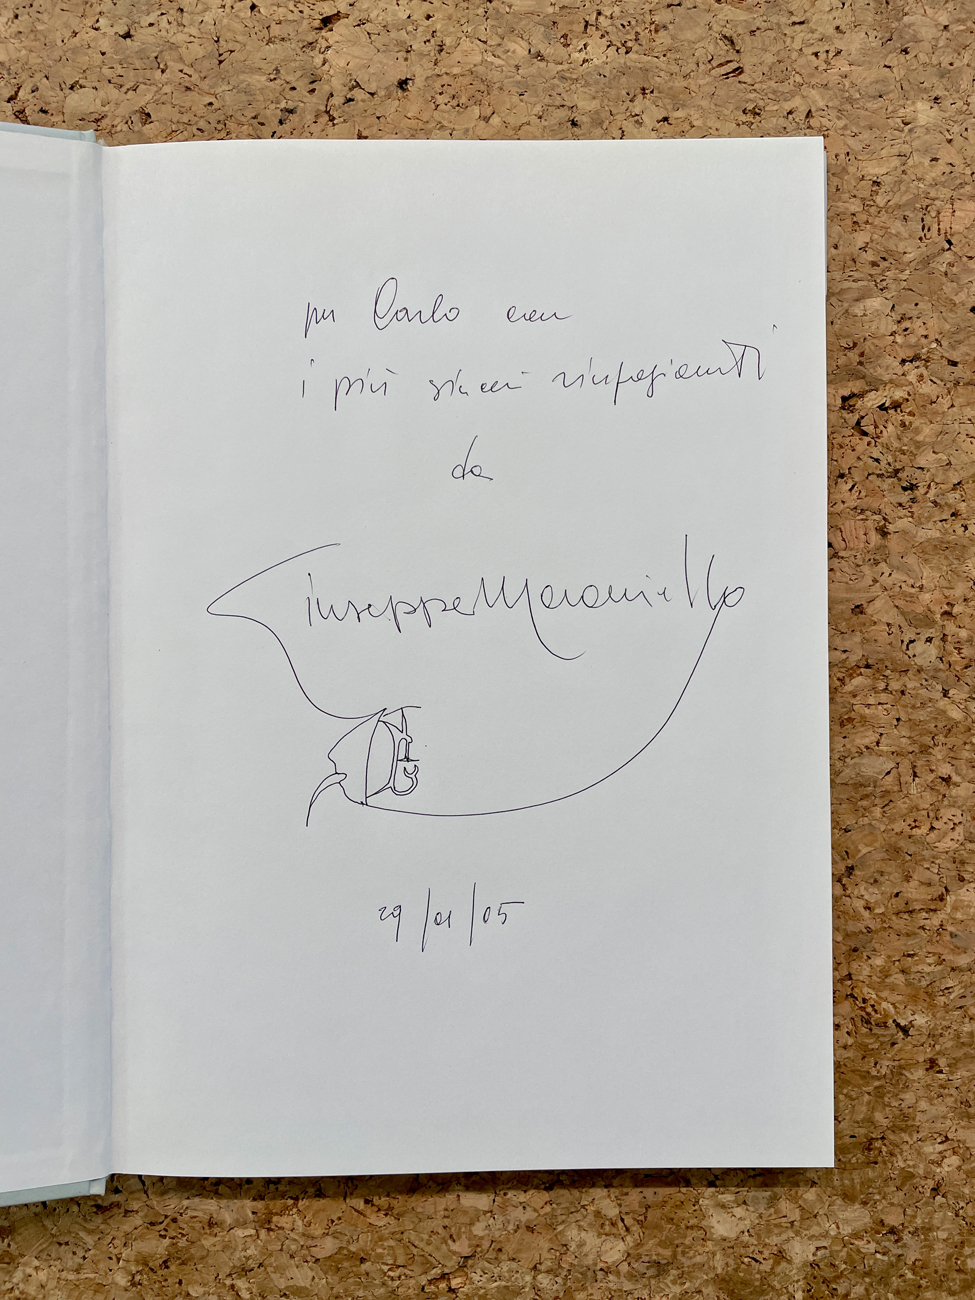 per Carlo con
i più sinceri ringraziamenti
da
Giuseppe Maraniello
29/01/05